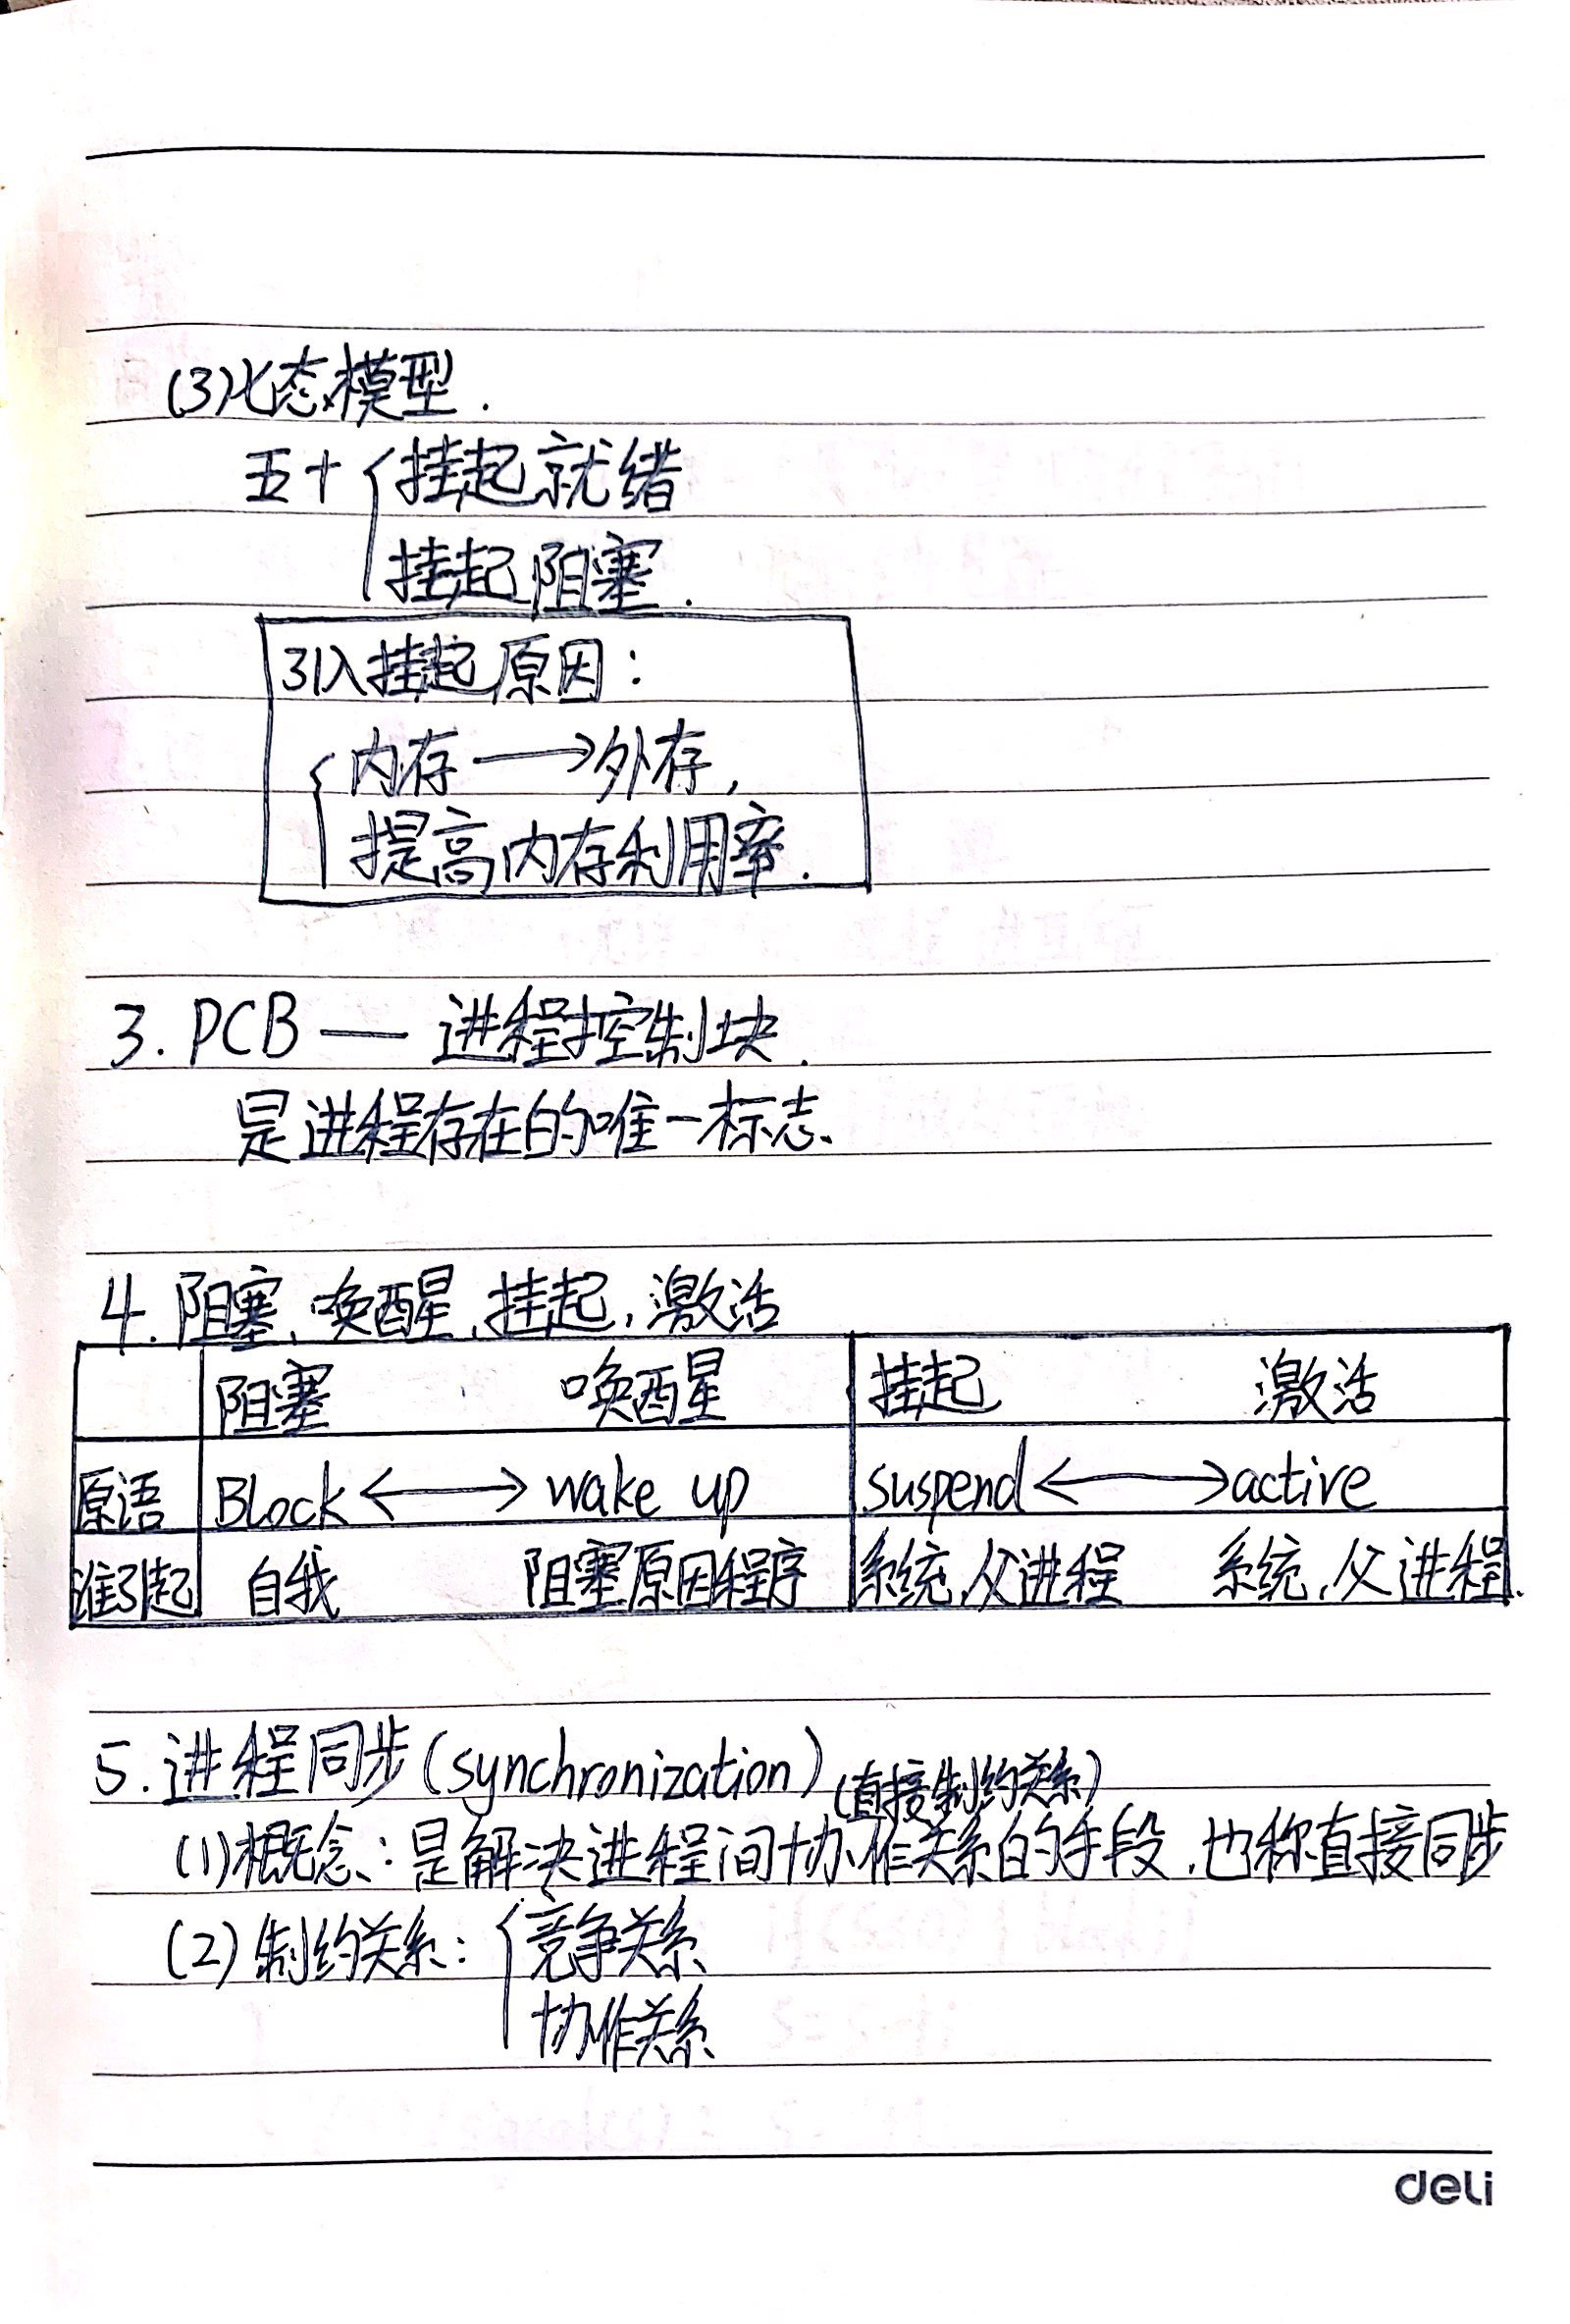 (3)七态模型.
五+{挂起就绪
挂起阻塞.
引入挂起原因:
{内存→外存,
提高内存利用率.
3. PCB — 进程控制块.
是进程存在的唯一标志.
4. 阻塞、唤醒、挂起、激活
阻塞 唤醒 挂起 激活
原语 Block ←→ wake up suspend ←→ active
谁引起 自我 阻塞原因程序 系统、父进程 系统、父进程.
5. 进程同步(synchronization)(直接制约关系)
(1)概念:是解决进程间协作关系的手段,也称直接同步
(2)制约关系:{竞争关系
协作关系
deli